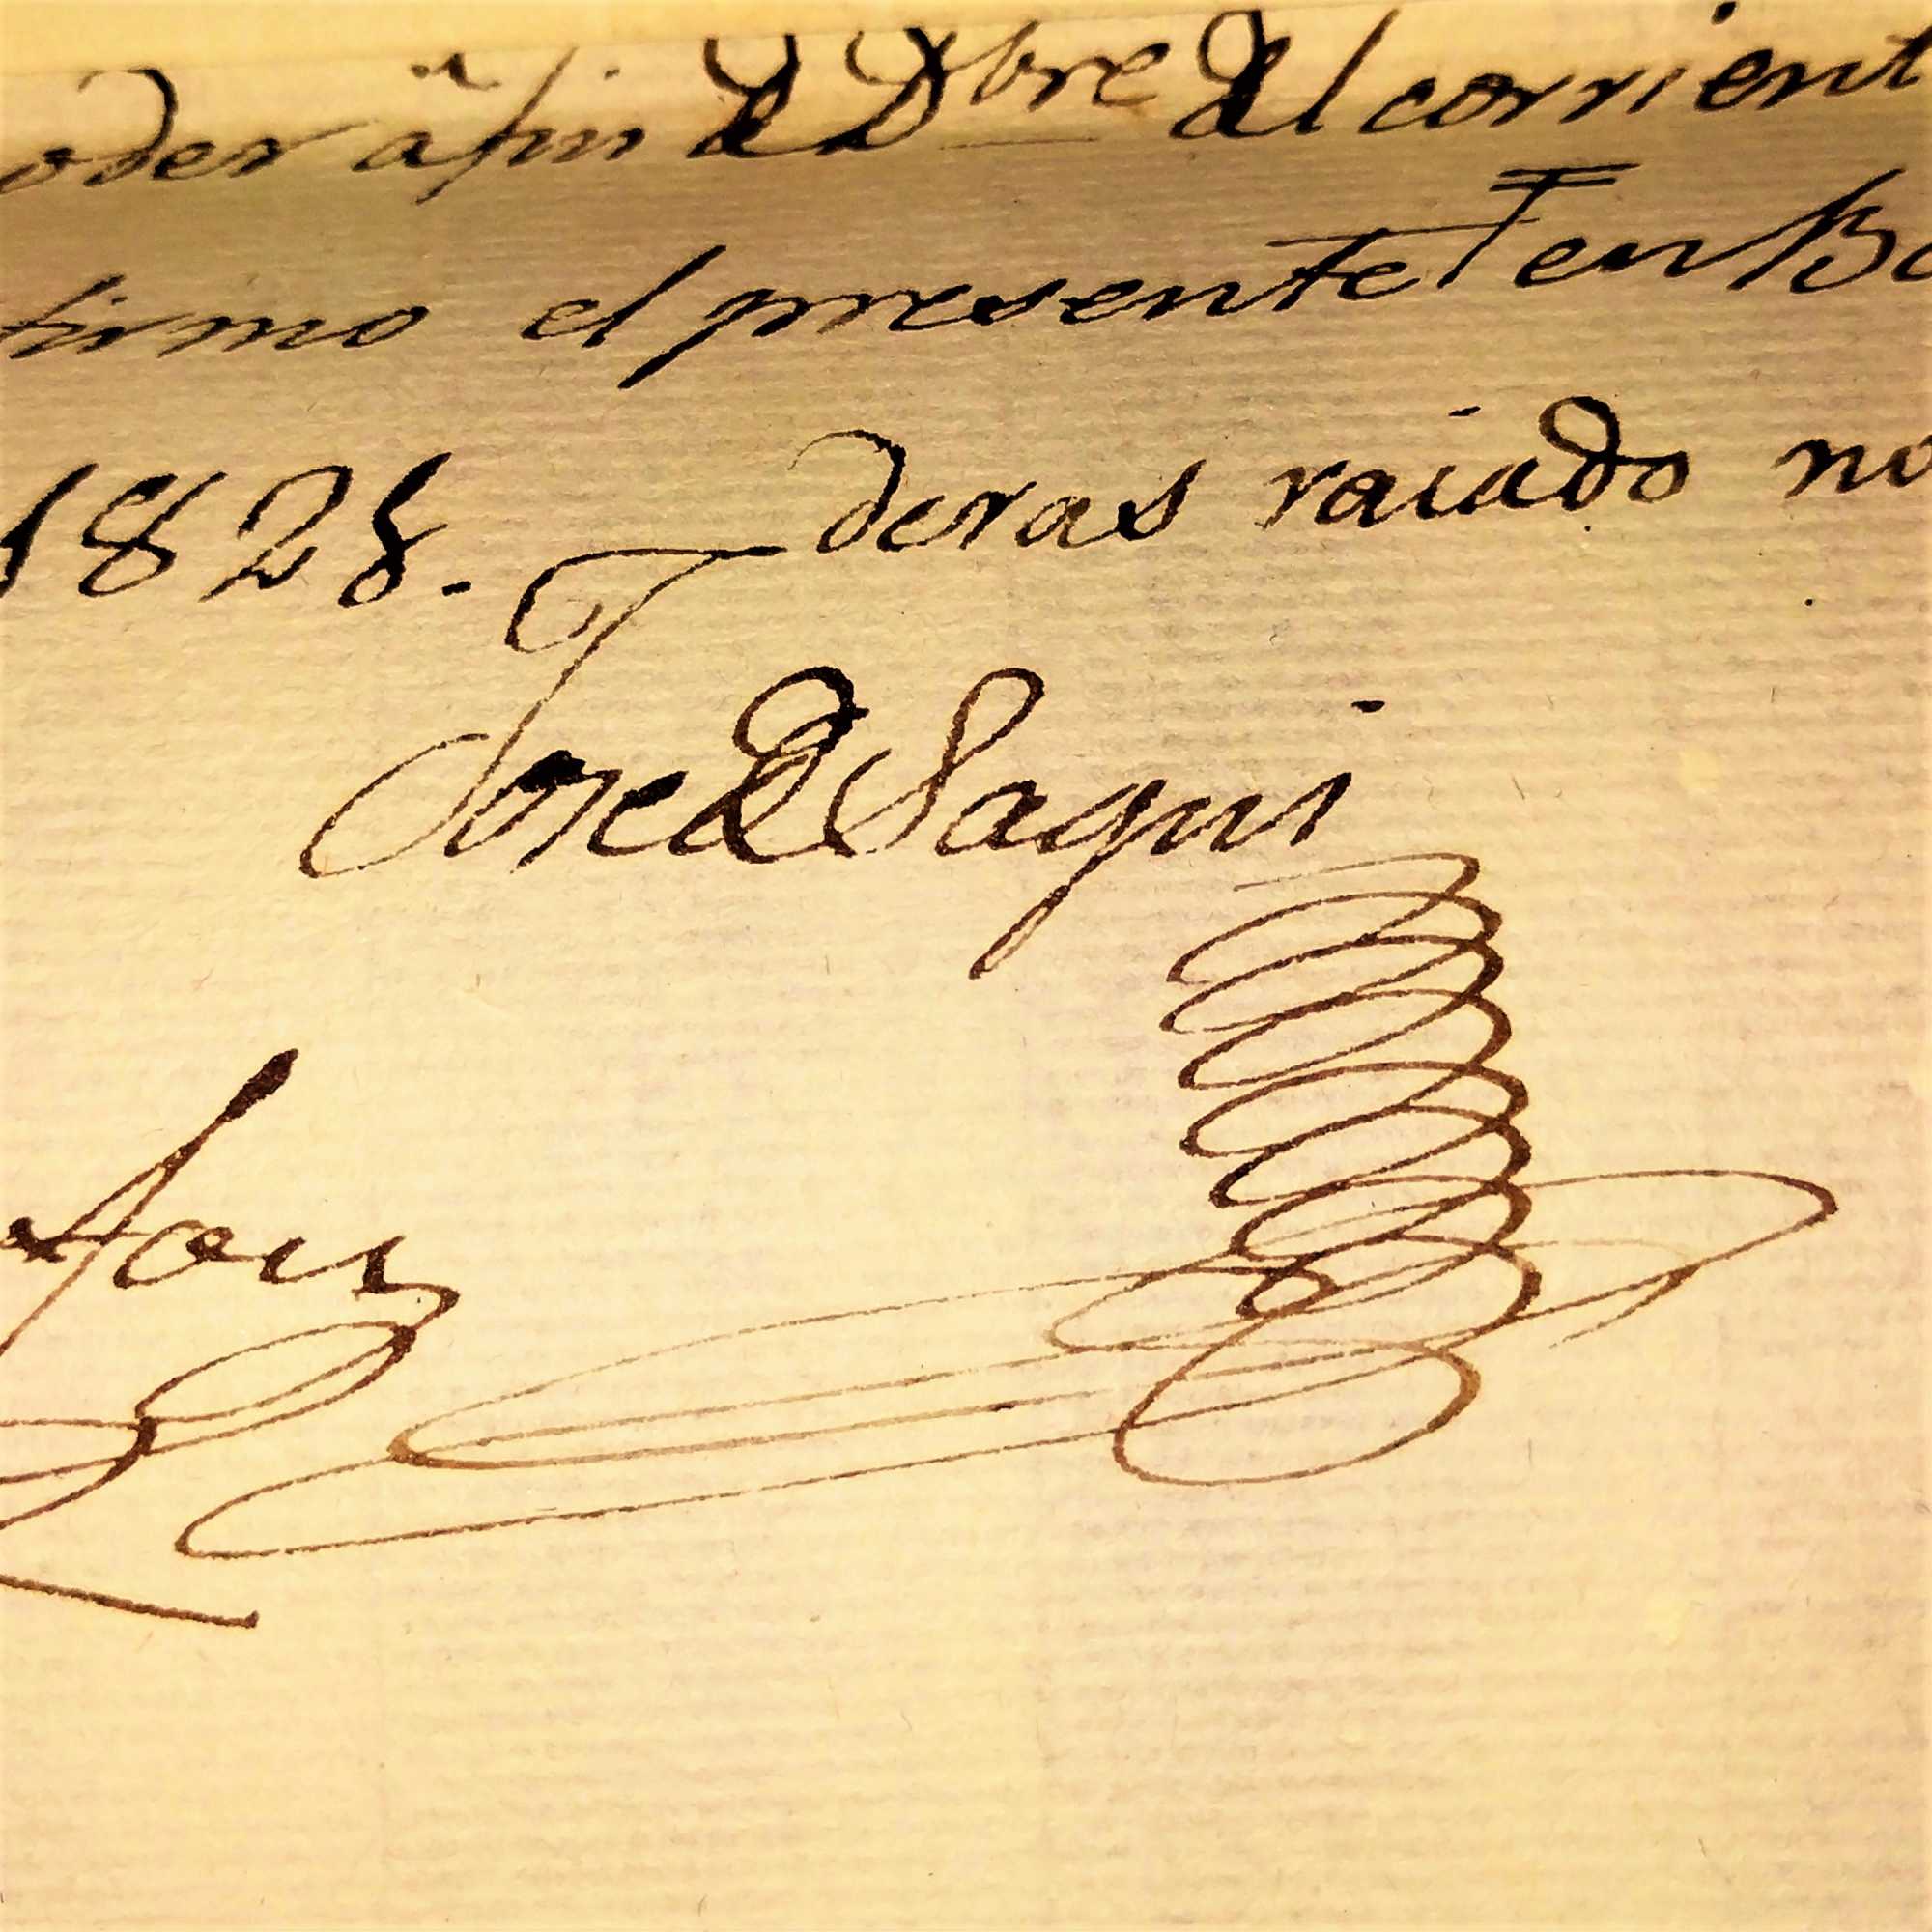 oder à fin de Dbre del corrient
firmo el presente en Ba
1828. deras raiado no
Jose de Saqui